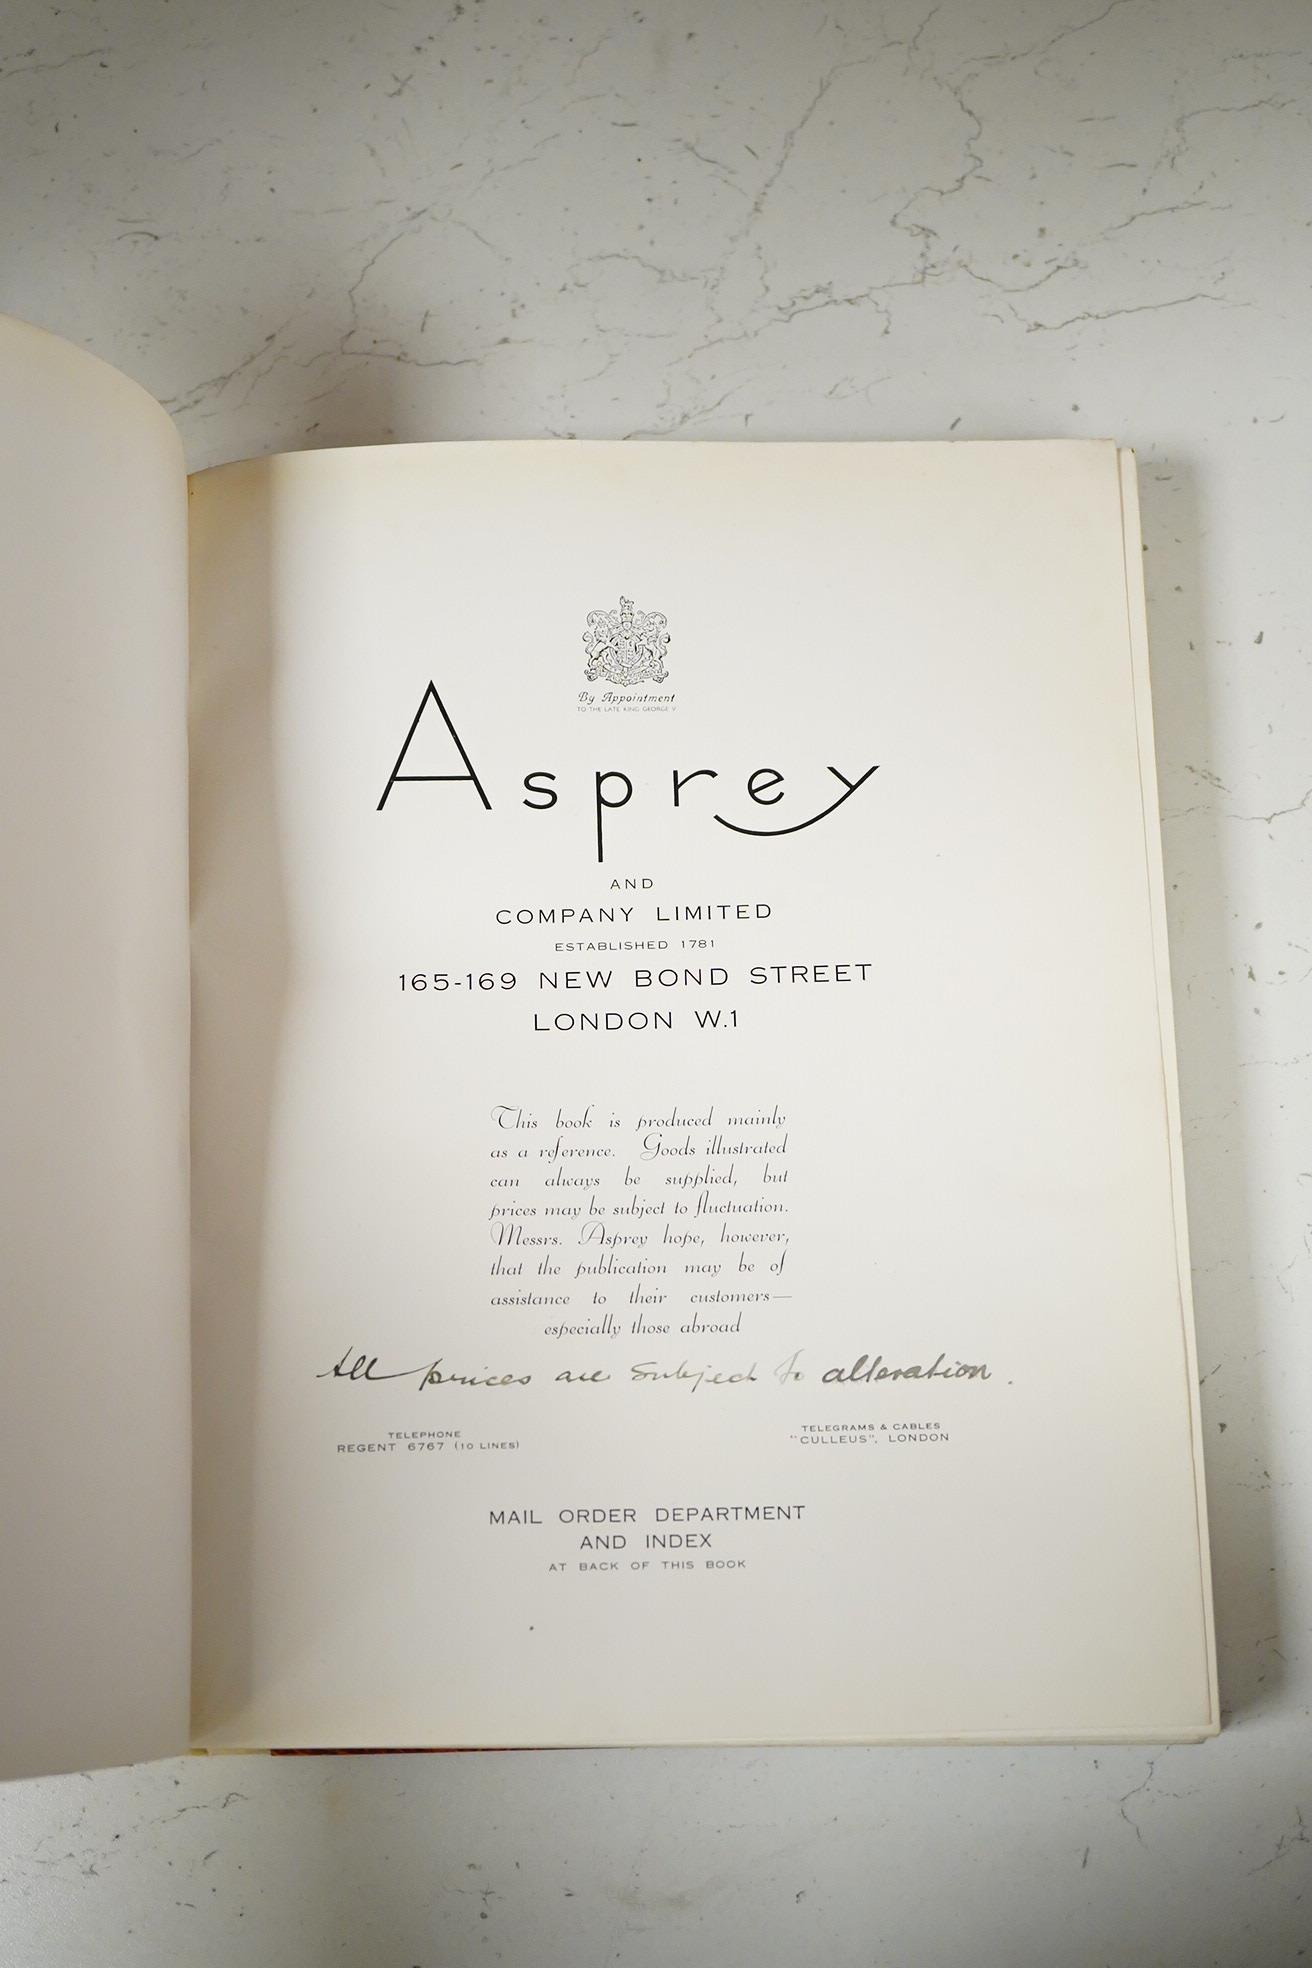 By Appointment
TO THE LATE KING GEORGE V
Asprey
AND
COMPANY LIMITED
ESTABLISHED 1781
165-169 NEW BOND STREET
LONDON W.1
This book is produced mainly
as a reference. Goods illustrated
can always be supplied, but
prices may be subject to fluctuation.
Messrs. Asprey hope, however,
that the publication may be of
assistance to their customers—
especially those abroad
All prices are subject to alteration.
TELEPHONE
REGENT 6767 (10 LINES)
TELEGRAMS & CABLES
"CULLEUS", LONDON
MAIL ORDER DEPARTMENT
AND INDEX
AT BACK OF THIS BOOK